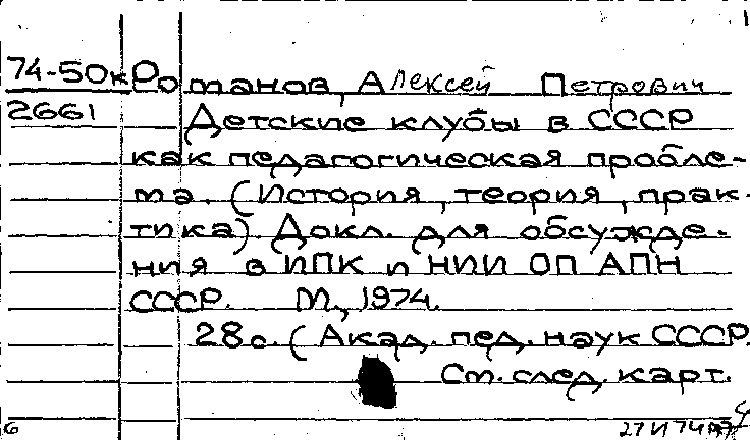 74-50к Романов, Алексей Петрович
2661 Детские клубы в СССР
как педагогическая пробле-
ма. (История, теория, прак-
тика). Докл. для обсужде-
ния в ИПК и НИИ ОП АПН
СССР. М., 1974.
28 с. (Акад. пед. наук СССР.
См. след. карт.
6 27 И 74